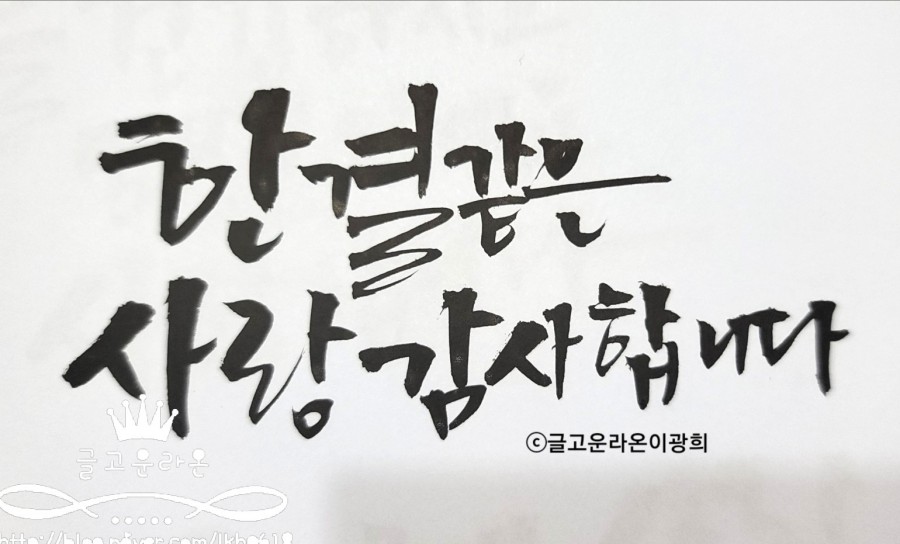 한결같은
사랑 감사합니다
ⓒ글고운라온이광희
글고운라온